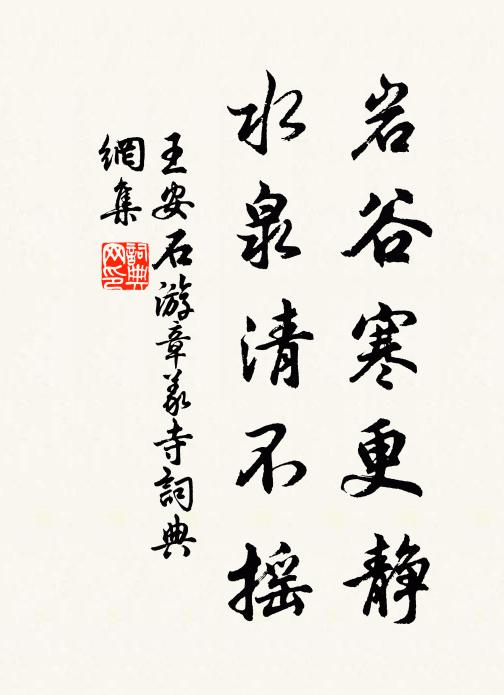 岩谷寒更静
水泉清不摇
王安石游章義寺詞典
網集
詞典网印